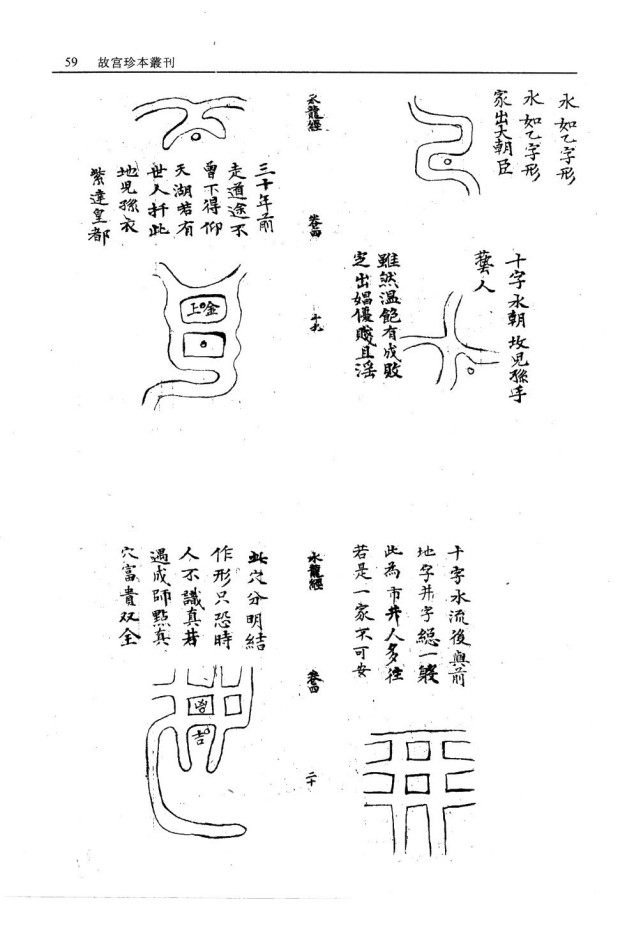 59 故宫珍本叢刊
水如乙字形
水如乙字形
家出大朝臣
十字水朝坟児孫手
藝人
雖然温飽有成敗
定出娼優賤且淫
水龍經
卷四
十九
三十年前
走道途不
曾下得仰
天湖若有
世人扦此
地児孫衣
紫達皇都
上
金
十字水流後與前
地字井字緫一般
此為市井人多住
若是一家不可安
水龍經
卷四
二十
此穴分明結
作形只恐時
人不識真若
遇成師點真
穴富貴双全
吉